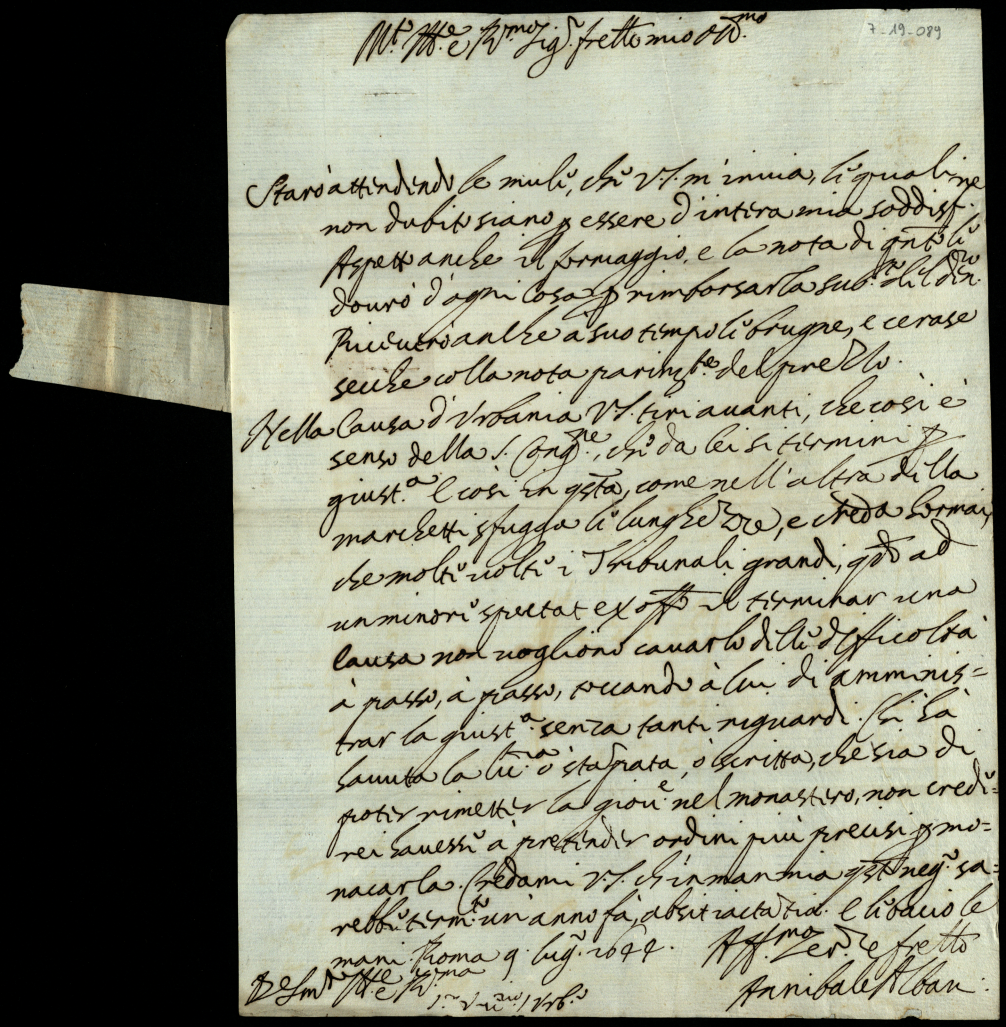 7-19-089
M.to Ill.e e R.mo Sig.r fretto mio oss.mo
Starò attendendo le mule, che V.S. m'inuia, le quali
non dubito siano p essere d'intera mia soddisf.ne
Aspetto anche il formaggio, e la nota di q.nto li
dourò d'ogni cosa p rimborsarla sub.to
Riceuerò anche a suo tempo le brugne, e cerase
secche colla nota parim.te del prezzo.
Nella Causa d'Urbania V.S. tiri auanti, che così è
senso della S. Cong.ne, che da lei si termini p
giust.a E così in q.sta, come nell'altra della
marchetti sfugga le lunghezze, e creda hormai,
che molte uolte i Tribunali grandi, q.do ad
un minore spectat ex off.o il terminar una
causa non uogliono cauarlo delle difficoltà
à passo, à passo, toccando à lui di amminis=
trar la giust.a senza tanti riguardi. Chi hà
hauuta la l.ra ò stāpata, ò scritta, che sia di
poter rimetter la gioue nel monastero, non crede=
rei hauesse à pretender ordini più precisi p mo=
nacarla. Credami V.S. ch'in man mia q.sto neg.o sa=
rebbe term.to un'anno fà, absit iactātia. E li bacio le
mani. Roma 9 lug.o 1644.
Di V.S. m.to Ill.e e R.ma
Aff.mo Ser.re e fretto
Annibale Albani
S.r Vic.rio Urb.o